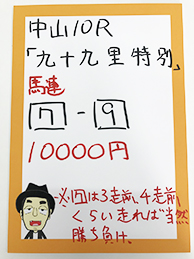 中山10R
「九十九里特別」
馬連
7-9
10000円
※7は3走前、4走前
くらい走れば当然
勝ち負け。